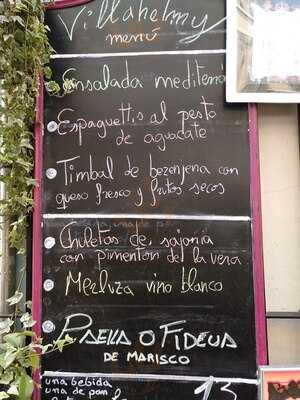 Villahelmy
menú
Ensalada mediterrá
Espaguettis al pesto
de aguacate
Timbal de berenjena con
queso fresco y frutos secos
Chuletas de sajonia
con pimenton de la vera
Merluza vino blanco
PAELLA O FIDEUA
DE MARISCO
una bebida
una de pan
13